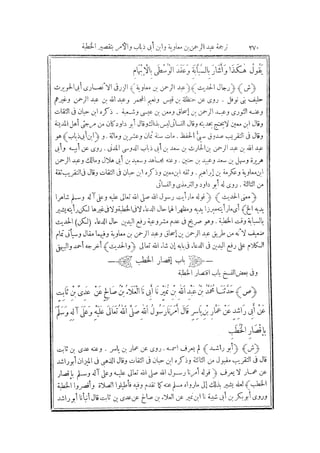 ٢٧٠ ترجمة عبد الرحمن بن معاوية وابن أبى ذباب والأمر بتقصير الخطبة
يَقُولُ هَكَذَا وَأَشَارَ بِالسَّبَّابَةِ وَعَقَدَ الْوُسْطَى بِالْإِبْهَامِ
﴿ش﴾ ﴿رجال الحديث﴾ ﴿عبد الرحمن بن معاوية﴾ الزرقى الأنصارى أبى الحويرث
حليف بنى نوفل. روى عن حنظلة بن قيس ونعيم المجمر وعبد الله بن عبد الرحمن وغيرهم
وعنه الثورى وعبد الرحمن بن إسحاق وشعبة. ذكره ابن حبان فى الثقات
وقال ابن معين لا يحتج بحديثه وقال النسائى ليس بذاك وقال أبو داود كان من مرجئى أهل المدينة
وقال فى التقريب صدوق سيئ الحفظ. مات سنة ثمان وعشرين ومائة. و﴿ابن أبى ذباب﴾ هو
عبد الله بن عبد الرحمن بن الحارث بن سعد بن أبى ذباب الدوسى المدنى. روى عن أبيه وأبى
هريرة وسهل بن سعد وعبيد بن حنين. وعنه مجاهد وسعيد بن أبى هلال ومالك وعبد الرحمن
ابن معاوية وعكرمة بن إبراهيم. وثقه ابن معين وذكره ابن حبان فى الثقات وقال فى التقريب ثقة
من الثالثة. روى له أبو داود والترمذى والنسائى
﴿معنى الحديث﴾ ﴿قوله ما رأيت رسول الله صلى الله تعالى عليه وعلى آله وسلم شاهرا
يديه الخ﴾ أى ما رأيته مبرزا يديه ومظهرا لهما حال الدعاء لا فى الخطبة ولا فى غيرها لكن رأيته يشير
بالسبابة وقت الخطبة. وهو صريح فى عدم مشروعية رفع اليدين حال الدعاء. ﴿لكن﴾ الحديث
ضعيف لأنه من طريق عبد الرحمن بن إسحاق وعبد الرحمن بن معاوية وفيهما مقال وسيأتى تمام
الكلام على رفع اليدين فى الدعاء فى بابه إن شاء الله تعالى ﴿والحديث﴾ أخرجه أحمد والبيهقى
باب إقصار الخطب
وفى بعض النسخ باب اقتصار الخطبة
﴿ص﴾ حَدَّثَنَا مُحَمَّدُ بْنُ عَبْدِ اللهِ بْنِ نُمَيْرٍ نَا أَبِى نَا الْعَلَاءُ بْنُ صَالِحٍ عَنْ عَدِىِّ بْنِ ثَابِتٍ
عَنْ أَبِى رَاشِدٍ عَنْ عَمَّارِ بْنِ يَاسِرٍ قَالَ أَمَرَنَا رَسُولُ اللهِ صَلَّى اللهُ تَعَالَى عَلَيْهِ وَعَلَى آلِهِ وَسَلَّمَ
بِإِقْصَارِ الْخُطَبِ
﴿ش﴾ ﴿أبو راشد﴾ لم يعرف اسمه. روى عن عمار بن ياسر. وعنه عدى بن ثابت
قال فى التقريب مقبول من الثالثة وذكره ابن حبان فى الثقات وقال الذهبى فى الميزان أبو راشد
عن عمار لا يعرف ﴿قوله أمرنا رسول الله صلى الله تعالى عليه وعلى آله وسلم بإقصار
الخطب﴾ لعله يشير بذلك إلى ما رواه مسلم عنه كما تقدم وفيه فأطيلوا الصلاة وأقصروا الخطبة
وروى أبو بكر بن أبى شيبة نا ابن نمير عن العلاء بن صالح عن عدى بن ثابت قال أنبأنا أبو راشد